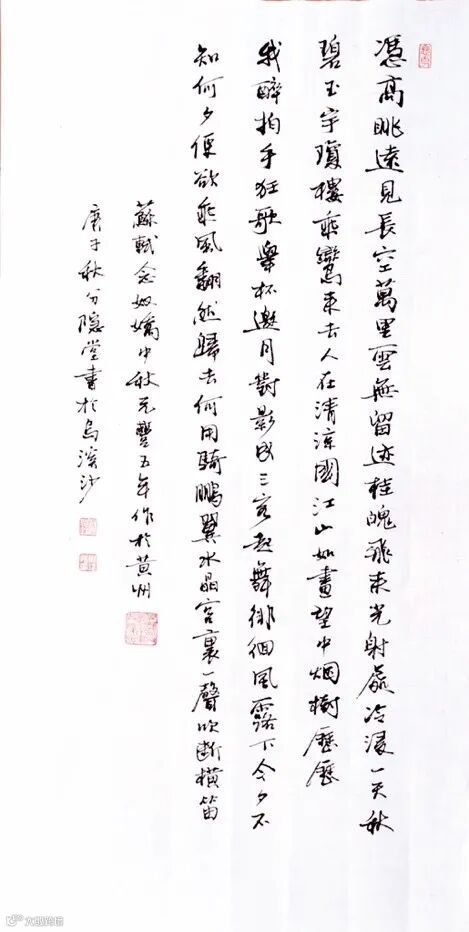 憑高眺遠見長空萬里雲無留迹桂魄飛來光射處冷浸一天秋
碧玉宇瓊樓乘鸞來去人在清涼國江山如畫望中烟樹歷歷
我醉拍手狂歌舉杯邀月對影成三客起舞徘徊風露下今夕不
知何夕便欲乘風翻然歸去何用騎鵬翼水晶宮裏一聲吹斷橫笛
蘇軾念奴嬌中秋元豐五年作於黃州
庚子秋分隱堂書於烏溪沙
大觀跨楮